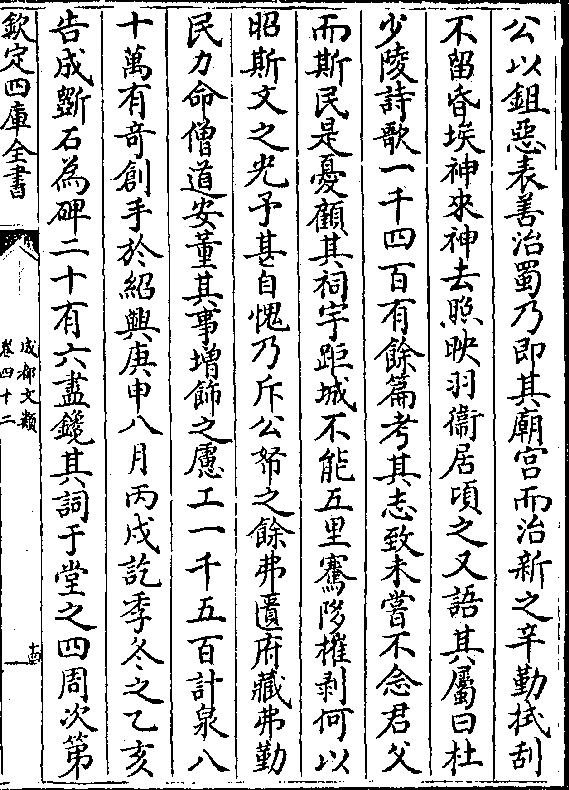 公以鉏惡表善治蜀乃即其廟宫而治新之辛勤拭刮
不留昏埃神來神去照映羽衞居頃之又語其屬曰杜
少陵詩歌一千四百有餘篇考其志致未嘗不念君父
而斯民是憂顧其祠宇距城不能五里騫陊摧剥何以
昭斯文之光予甚自愧乃斥公帑之餘弗匱府藏弗勤
民力命僧道安董其事增飾之慮工一千五百計泉八
十萬有奇創手於紹興庚申八月丙戌訖季冬之乙亥
告成斵石為碑二十有六盡鑱其詞于堂之四周次第
欽定四庫全書
成都文類
卷四十二
十四